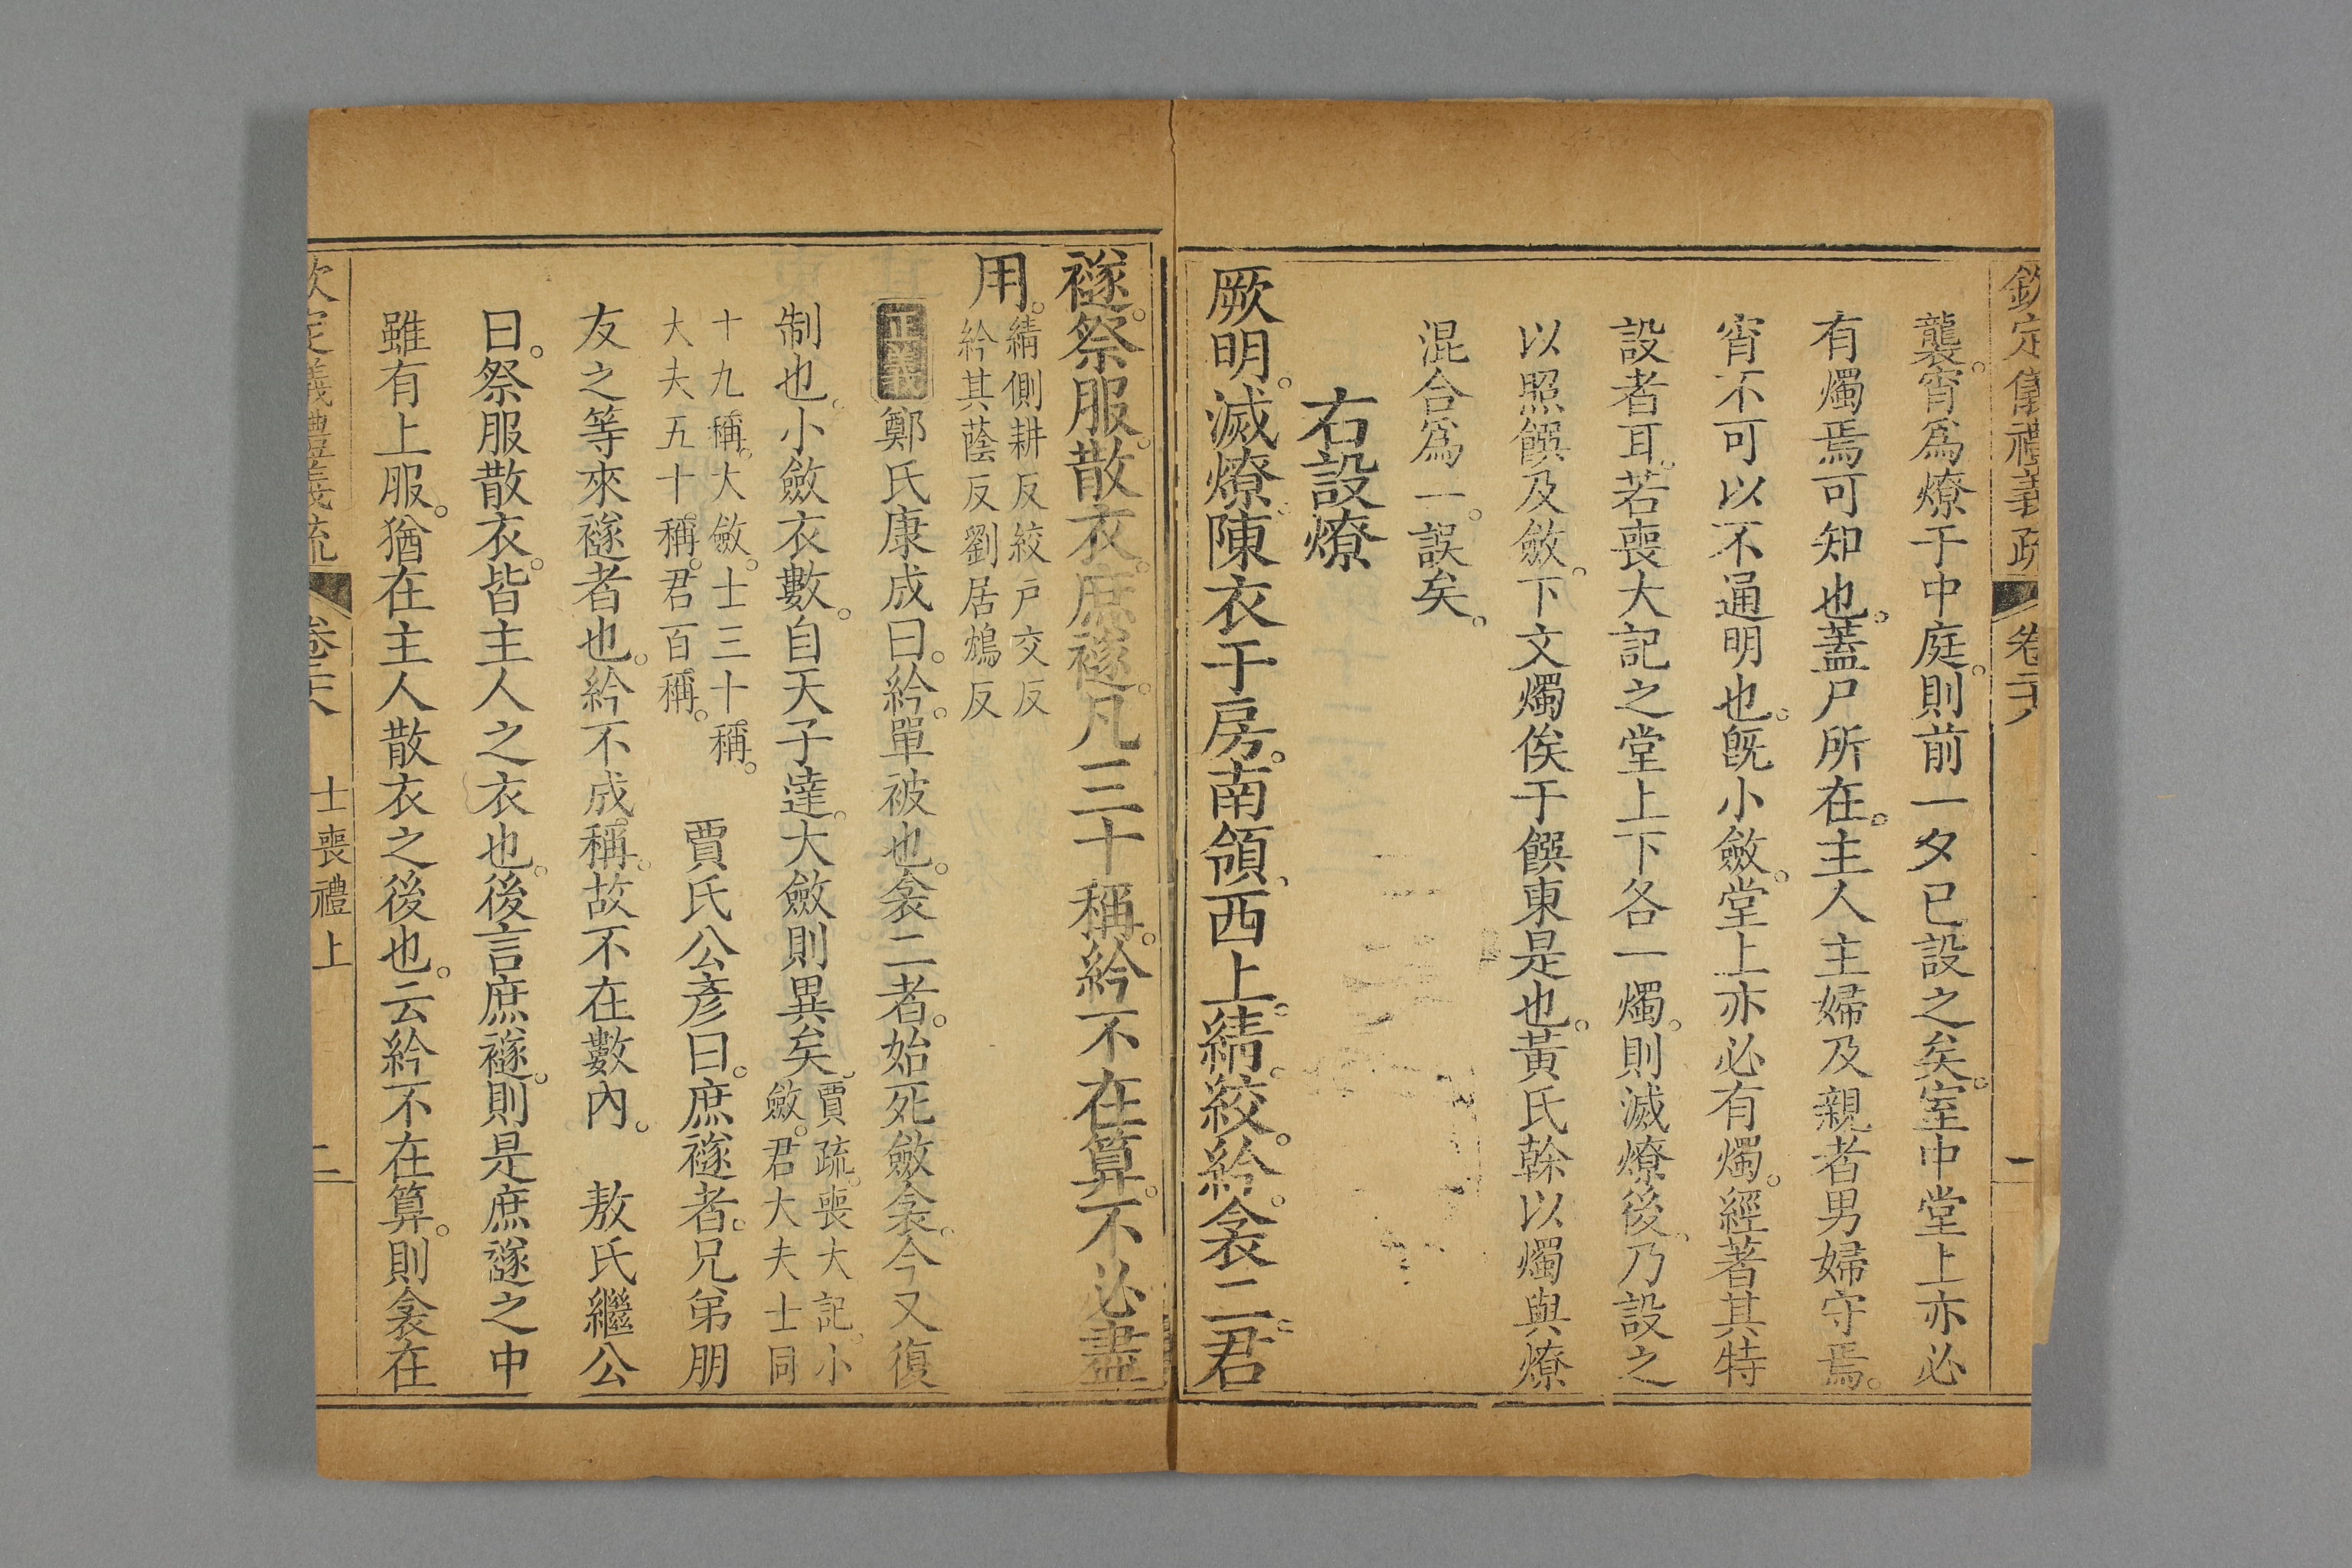 欽定儀禮義疏 卷二十八 一
襲。宵爲燎于中庭。則前一夕已設之矣。室中堂上亦必
有燭焉可知也。蓋尸所在。主人主婦及親者男婦守焉。
宵不可以不通明也。旣小斂。堂上亦必有燭。經著其特
設者耳。若喪大記之堂上下各一燭。則滅燎後、乃設之
以照饌及斂。下文燭俟于饌東是也。黃氏榦以燭與燎
混合爲一。誤矣。
右設燎
厥明。滅燎。陳衣于房。南領、西上。綪。絞。紟。衾二。君
襚。祭服。散衣。庶襚。凡三十稱。紟不在算。不必盡
用。
綪側耕反絞戶交反
紟其蔭反劉居鴆反
正義 鄭氏康成曰。紟。單被也。衾二者。始死斂衾。今又復
制也。小斂衣數。自天子達。大斂則異矣。
賈疏。喪大記。小
斂。君大夫士同
十九稱。大斂。士三十稱。
大夫五十稱。君百稱。
賈氏公彥曰。庶襚者。兄弟朋
友之等來襚者也。紟不成稱。故不在數內。 敖氏繼公
曰。祭服散衣。皆主人之衣也。後言庶襚。則是庶襚之中
雖有上服。猶在主人散衣之後也。云紟不在算。則衾在
欽定儀禮義疏 卷二十八 士喪禮上 二